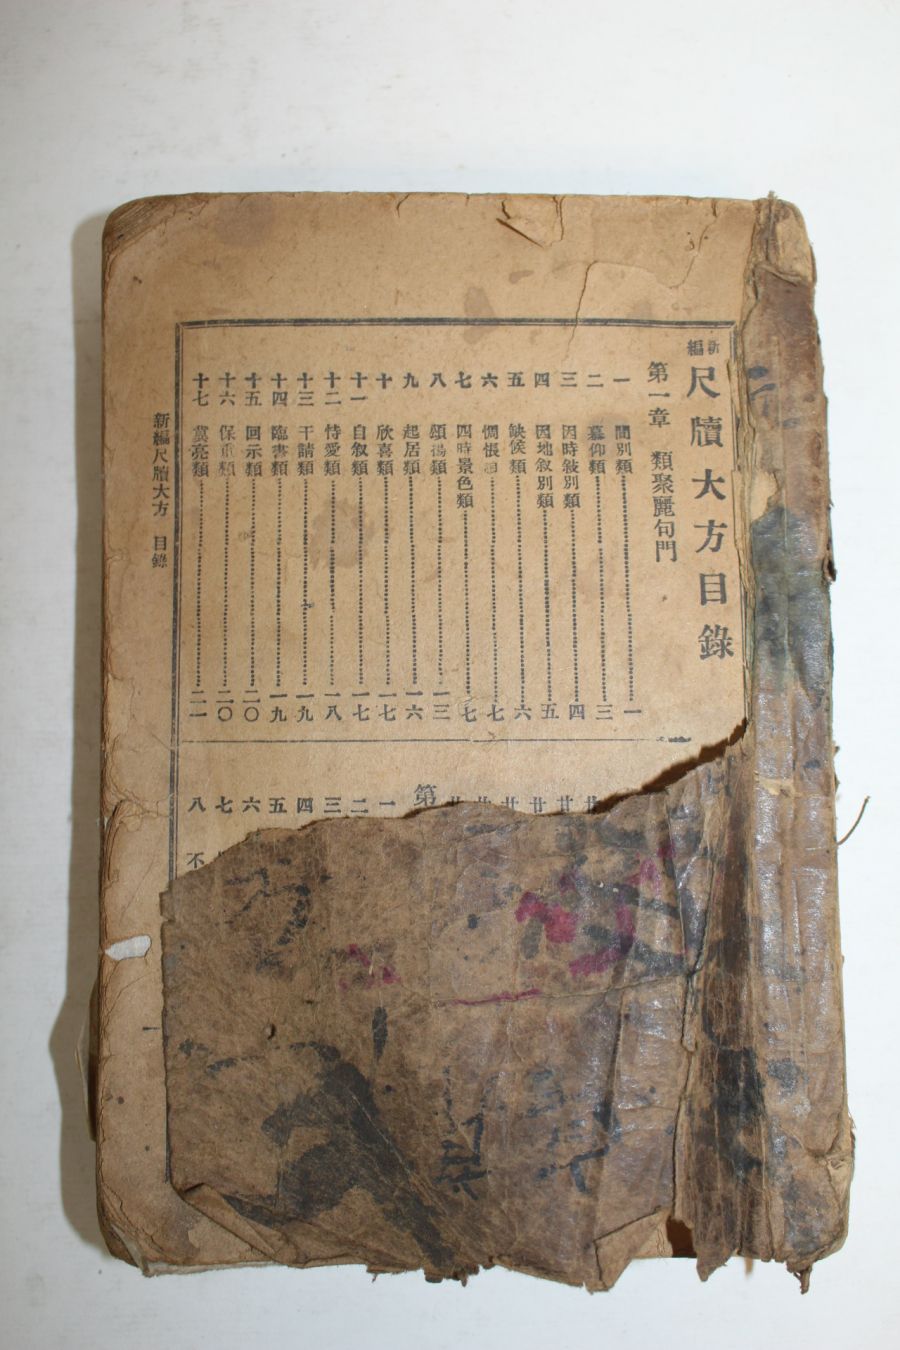 新編 尺牘大方目錄
第一章 類聚麗句門
一 間別類 一
二 慕仰類 三
三 因時敍別類 四
四 因地敍別類 五
五 缺候類 六
六 惆悵 七
七 四時景色類 七
八 頌揚類 一三
九 起居類 一六
十 欣喜類 一七
十一 自敘類 一七
十二 恃愛類 一八
十三 干請類 一九
十四 臨書類 一九
十五 回示類 二〇
十六 保重類 二〇
十七 冀亮類 二一
第
一
二
三
四
五
六
七
八 不
新編尺牘大方 目錄